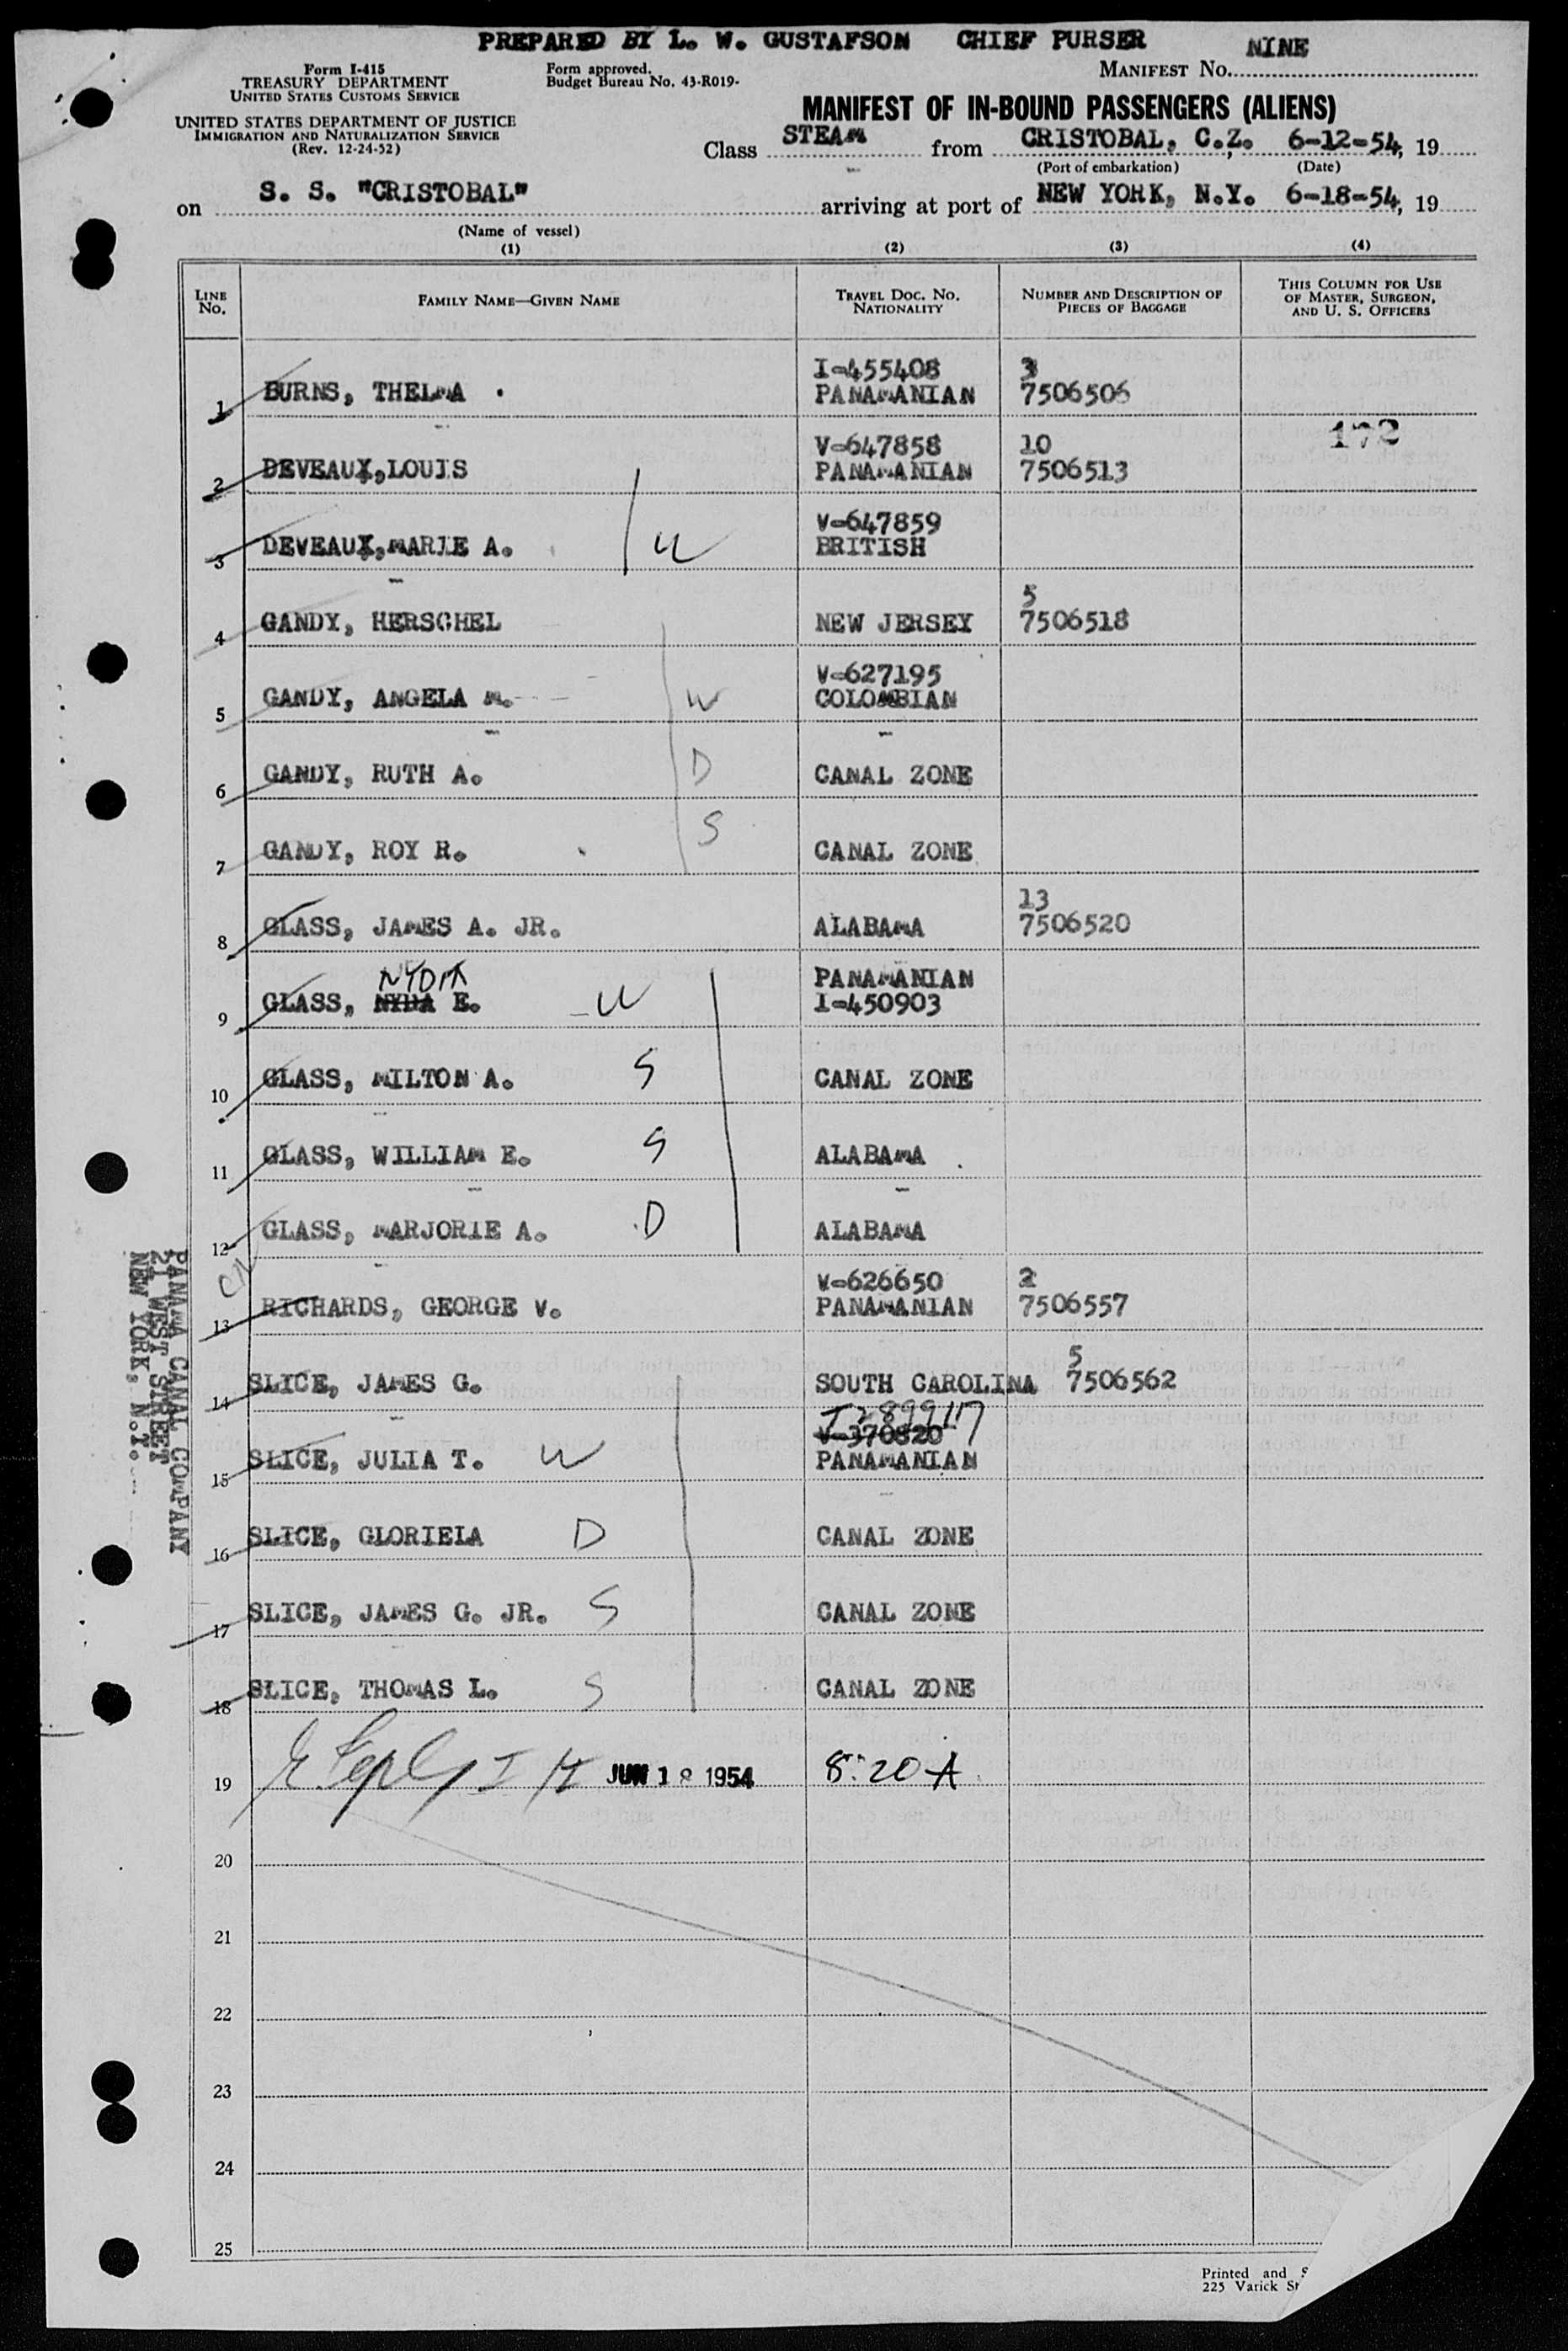 PREPARED BY L. W. GUSTAFSON CHIEF PURSER
NINE
Form I-415
TREASURY DEPARTMENT
UNITED STATES CUSTOMS SERVICE
UNITED STATES DEPARTMENT OF JUSTICE
IMMIGRATION AND NATURALIZATION SERVICE
(Rev. 12-24-52)
Form approved.
Budget Bureau No. 43-R019-
MANIFEST No.
MANIFEST OF IN-BOUND PASSENGERS (ALIENS)
Class STEAM from CRISTOBAL, C.Z. 6-12-54, 19
(Port of embarkation) (Date)
on S. S. "CRISTOBAL" arriving at port of NEW YORK, N.Y. 6-18-54, 19
(Name of vessel)
(1) (2) (3) (4)
LINE No. FAMILY NAME—GIVEN NAME TRAVEL DOC. No. NATIONALITY NUMBER AND DESCRIPTION OF PIECES OF BAGGAGE THIS COLUMN FOR USE OF MASTER, SURGEON, AND U. S. OFFICERS
I-455408 3
1 BURNS, THELMA PANAMANIAN 7506506
V-647858 10 172
2 DEVEAUX,LOUIS PANAMANIAN 7506513
V-647859
3 DEVEAUX,MARIE A. W BRITISH
5
4 GANDY, HERSCHEL NEW JERSEY 7506518
V-627195
5 GANDY, ANGELA M. W COLOMBIAN
6 GANDY, RUTH A. D CANAL ZONE
7 GANDY, ROY R. S CANAL ZONE
13
8 GLASS, JAMES A. JR. ALABAMA 7506520
NYDIA PANAMANIAN
9 GLASS, NYDA E. W I-450903
10 GLASS, MILTON A. S CANAL ZONE
11 GLASS, WILLIAM E. S ALABAMA
12 GLASS, MARJORIE A. D ALABAMA
V-626650 2
13 RICHARDS, GEORGE V. PANAMANIAN 7506557
5
14 SLICE, JAMES G. SOUTH CAROLINA 7506562
I2899117
V-370820
15 SLICE, JULIA T. W PANAMANIAN
16 SLICE, GLORIELA D CANAL ZONE
17 SLICE, JAMES G. JR. S CANAL ZONE
18 SLICE, THOMAS L. S CANAL ZONE
19 JUN 18 1954 8:20 A
20
21
22
23
24
25
PANAMA CANAL COMPANY
21 WEST STREET
NEW YORK, N.Y.
Printed and
225 Varick St